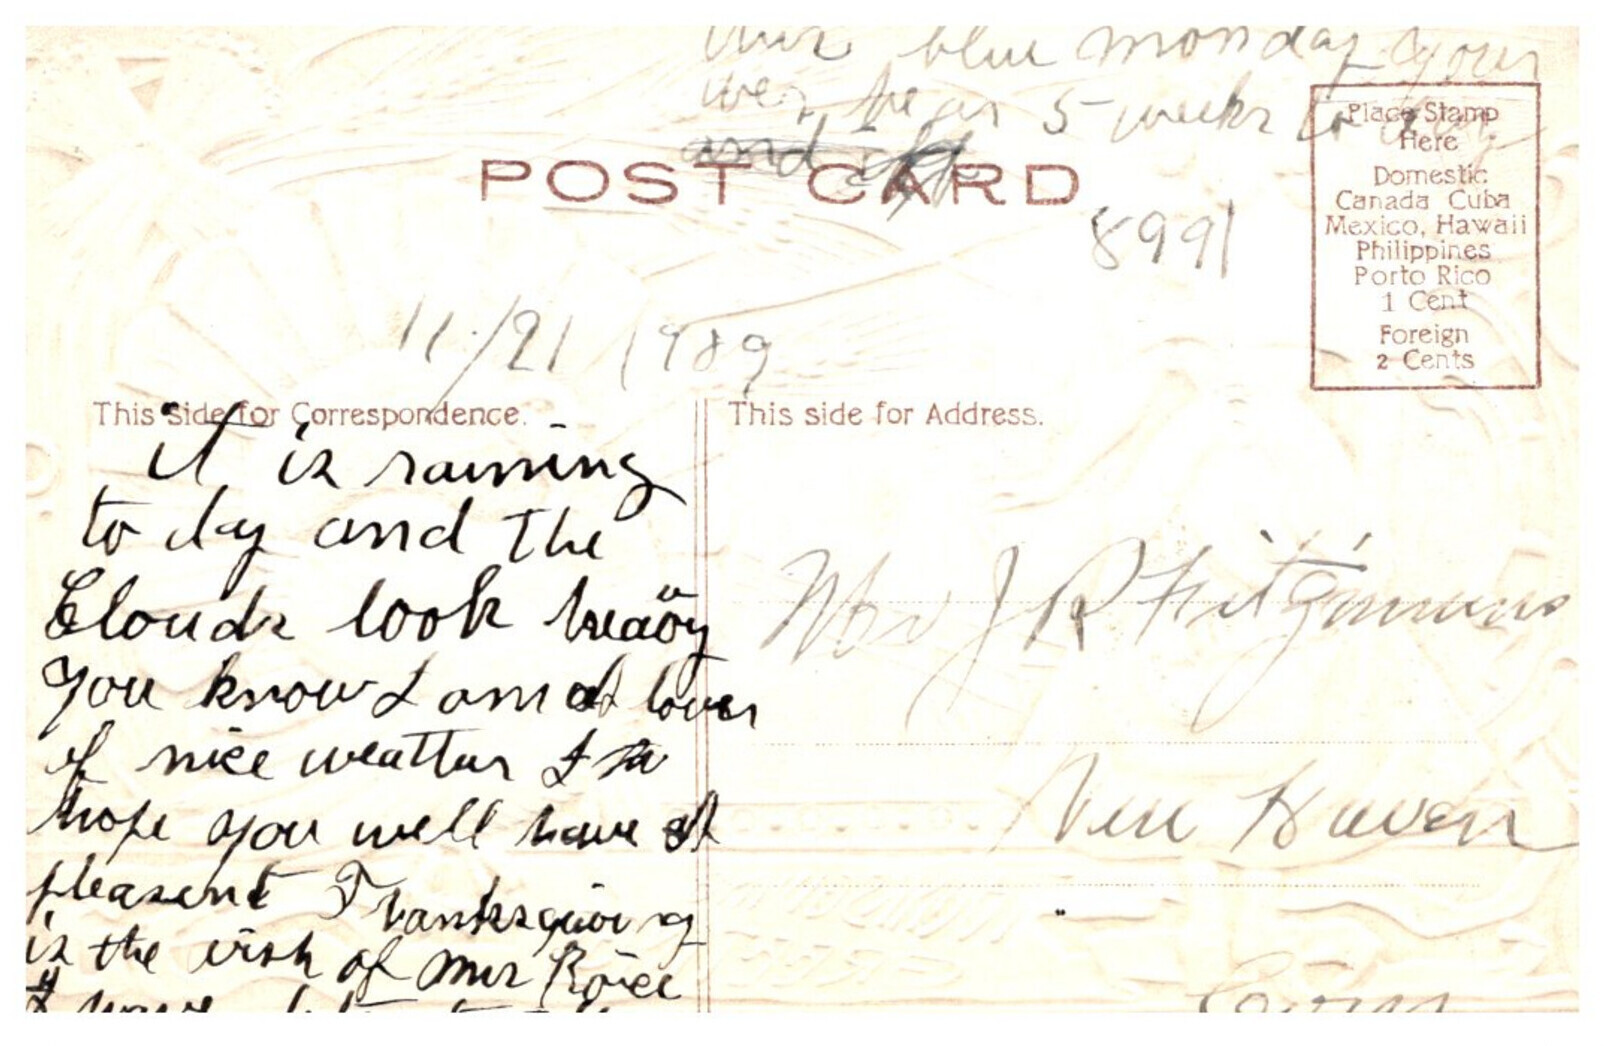 blue monday your
5 weeks to day
and
POST CARD
8991
11/21 1989
Place Stamp
Here
Domestic
Canada Cuba
Mexico, Hawaii
Philippines
Porto Rico
1 Cent
Foreign
2 Cents
This side for Correspondence.
it is raining
to day and the
Clouds look heavy
you know I am a lover
of nice weather I
hope you well have a
pleasent Thanksgiving
is the wish of Mrs Royce
This side for Address.
Mrs J R Fitzsimmons
New Haven
Conn